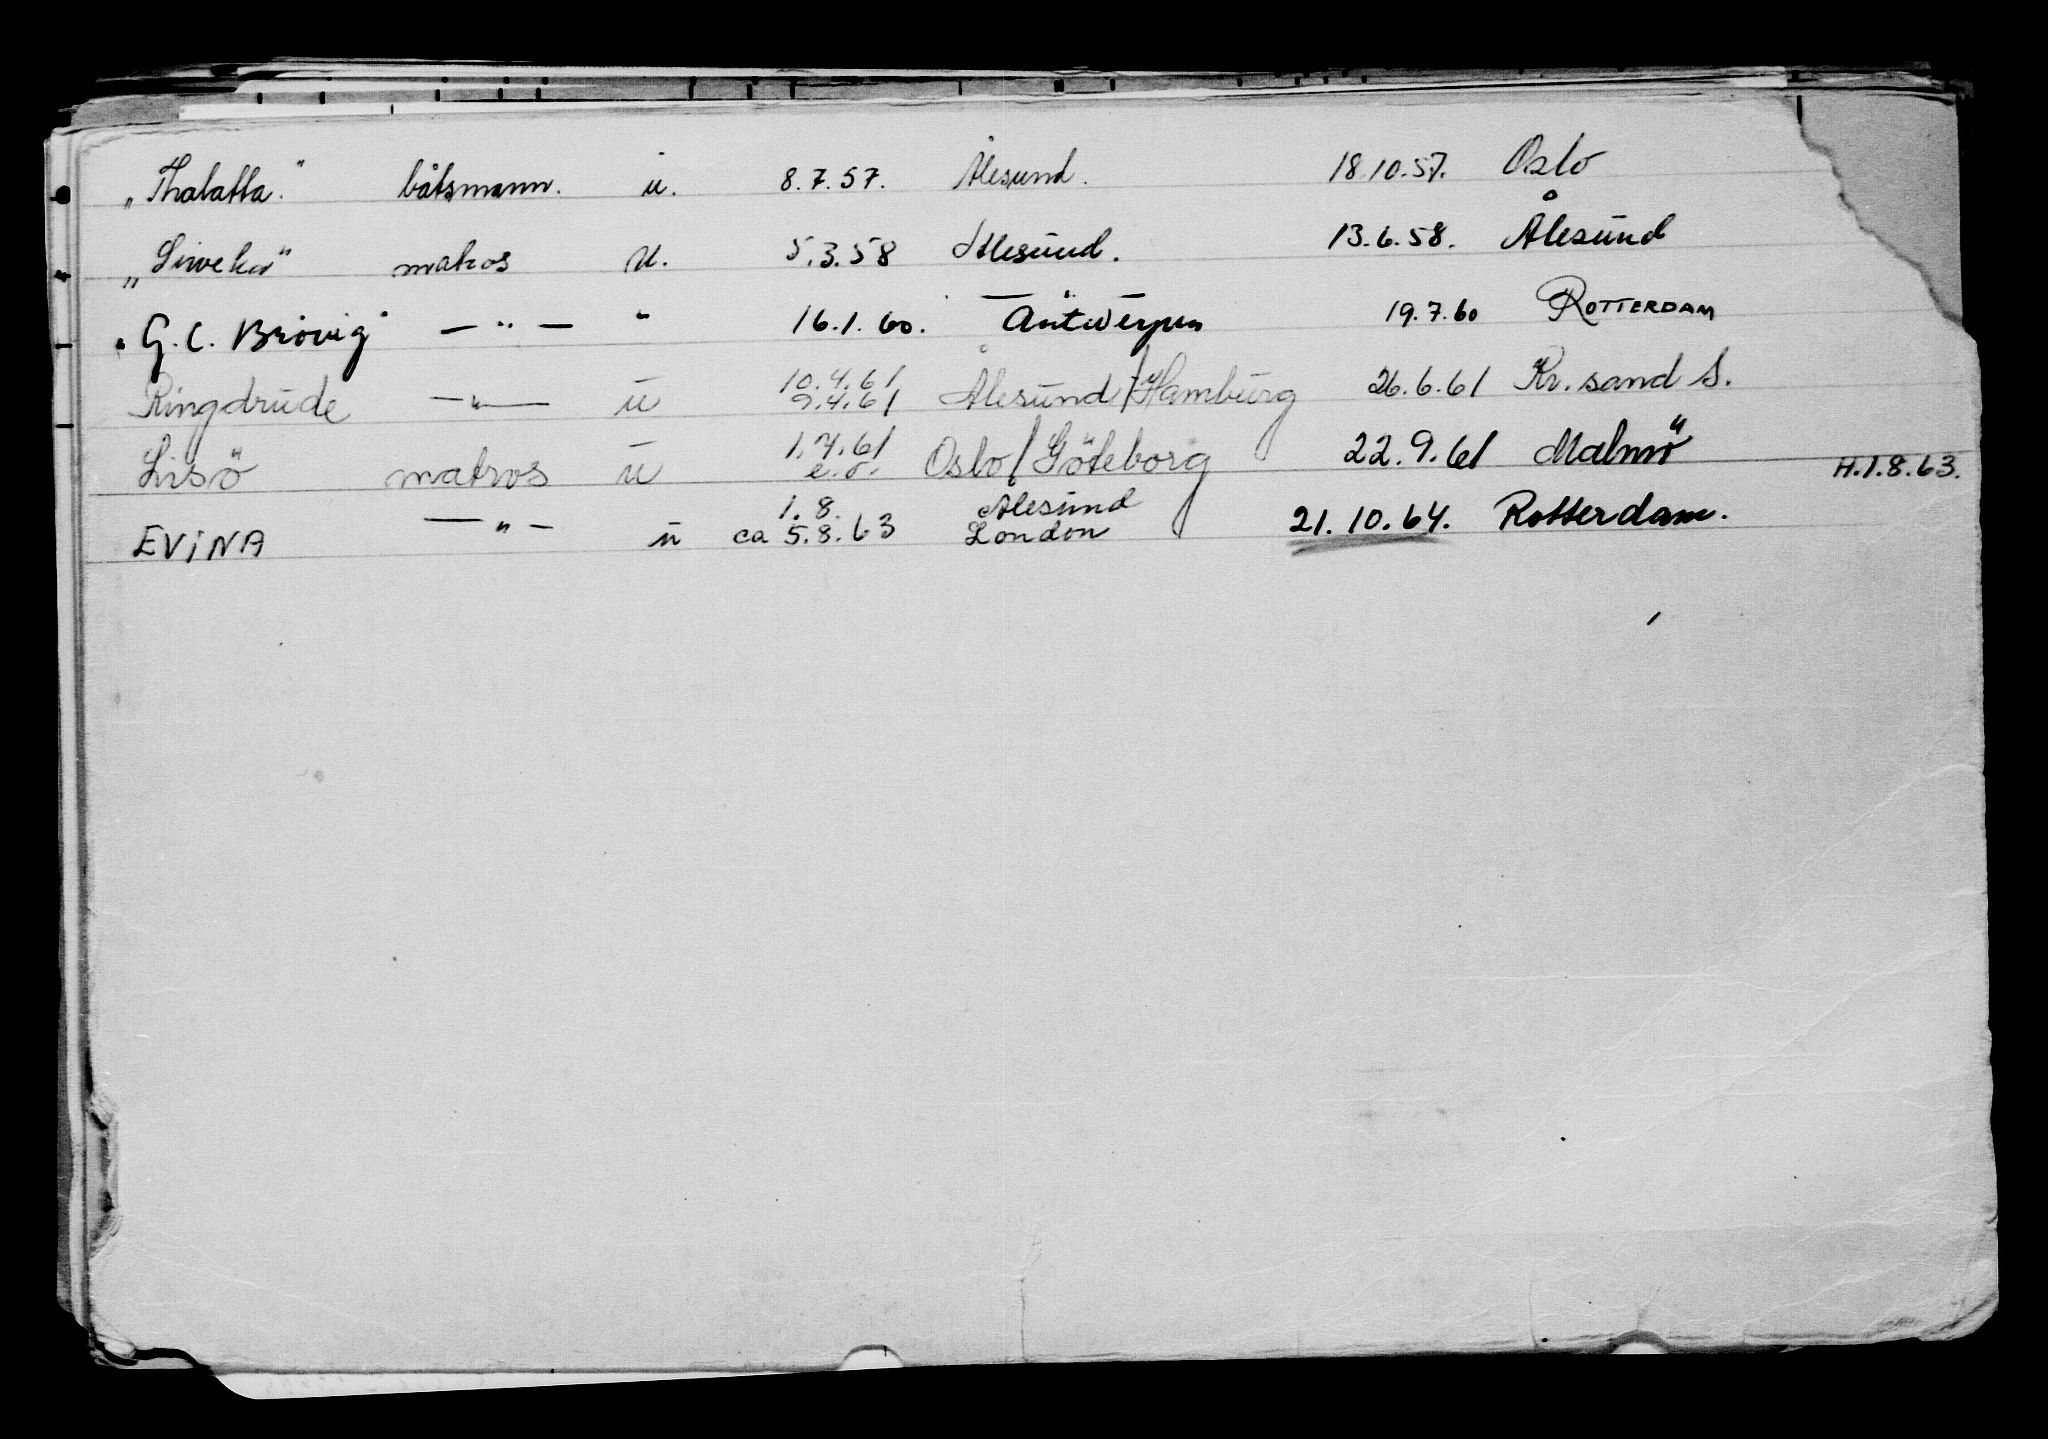 „Thalatta." båtsmann. u. 8.7.57. Ålesund. 18.10.57. Oslo
matros u. 5.3.58 Ålesund. 13.6.58. Ålesund
"G. C. Brövig" — " — " 16.1.60. Antwerpen 19.7.60 ROTTERDAM
Ringdrude — " — u 10.4.61 9.4.61 Ålesund/Hamburg 26.6.61 Kr. sand S.
Lisö matros u 1.7.61 e.o. Oslo/Göteborg 22.9.61 Malmö H.1.8.63.
EVINA — " — u ca 1.8. 5.8.63 Ålesund London 21.10.64. Rotterdam.